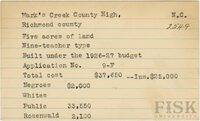 Mark's Creek County High, N.C.
Richmond county 2549
Five acres of land
Nine-teacher type
Built under the 1926-27 budget
Application No. 9-F
Total cost $37,650 --Ins.$25,000
Negroes $2,000
Whites
Public 33,550
Rosenwald 2,100
FISK
UNIVERSITY